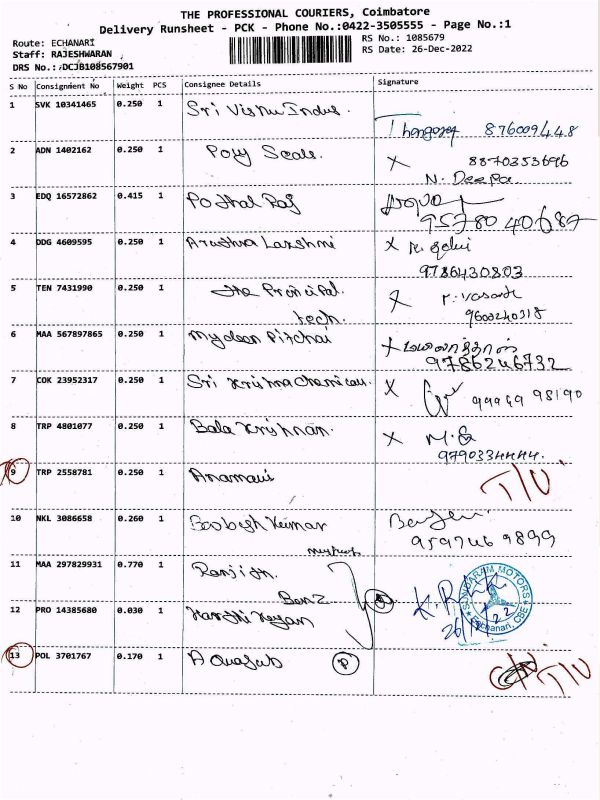 THE PROFESSIONAL COURIERS, Coimbatore
Delivery Runsheet - PCK - Phone No.:0422-3505555 - Page No.:1
Route: ECHANARI
Staff: RAJESHWARAN
DRS No.: DCJB108567901
RS No.: 1085679
RS Date: 26-Dec-2022
S No Consignment No Weight PCS Consignee Details Signature
1 SVK 10341465 0.250 1 Sri Vishnu Indus.
8760094448
2 ADN 1402162 0.250 1 Poly Scale. X 8870353696
N. Deepa
3 EDQ 16572862 0.415 1 Pothal Raj
95780 40687
4 DDG 4609595 0.250 1 Arudhra Lakshmi X
9786430803
5 TEN 7431990 0.250 1 The Principal. X P. Vasanth
tech. 9600240318
6 MAA 567897865 0.250 1 Mydeen Pitchai X
9786246732
7 COK 23952317 0.250 1 Sri Krishna Chemicals. X
99949 98190
8 TRP 4801077 0.250 1 Bala Krishnan. X M.G
9790334444.
9 TRP 2558781 0.250 1 T/N.
10 NKL 3086658 0.260 1 Boobesh Kumar
9597469899
11 MAA 297829931 0.770 1 Ranjith.
Benz
12 PRO 14385680 0.030 1 Karthi Keyan
SUNDARAM MOTORS
Echanari, CBE
13 POL 3701767 0.170 1 P T/N